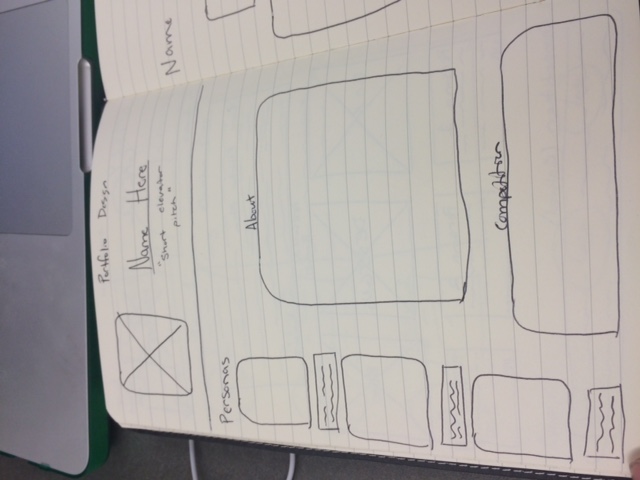 Portfolio Design
Name Here
"Short elevator
pitch"
Name
Personas
About
Competition